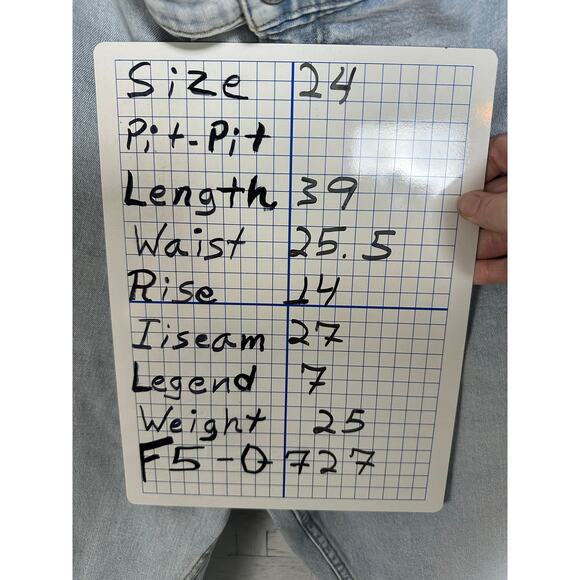 Size 24
Pit-Pit
Length 39
Waist 25.5
Rise 14
Iiseam 27
Legend 7
Weight 25
F5-0727